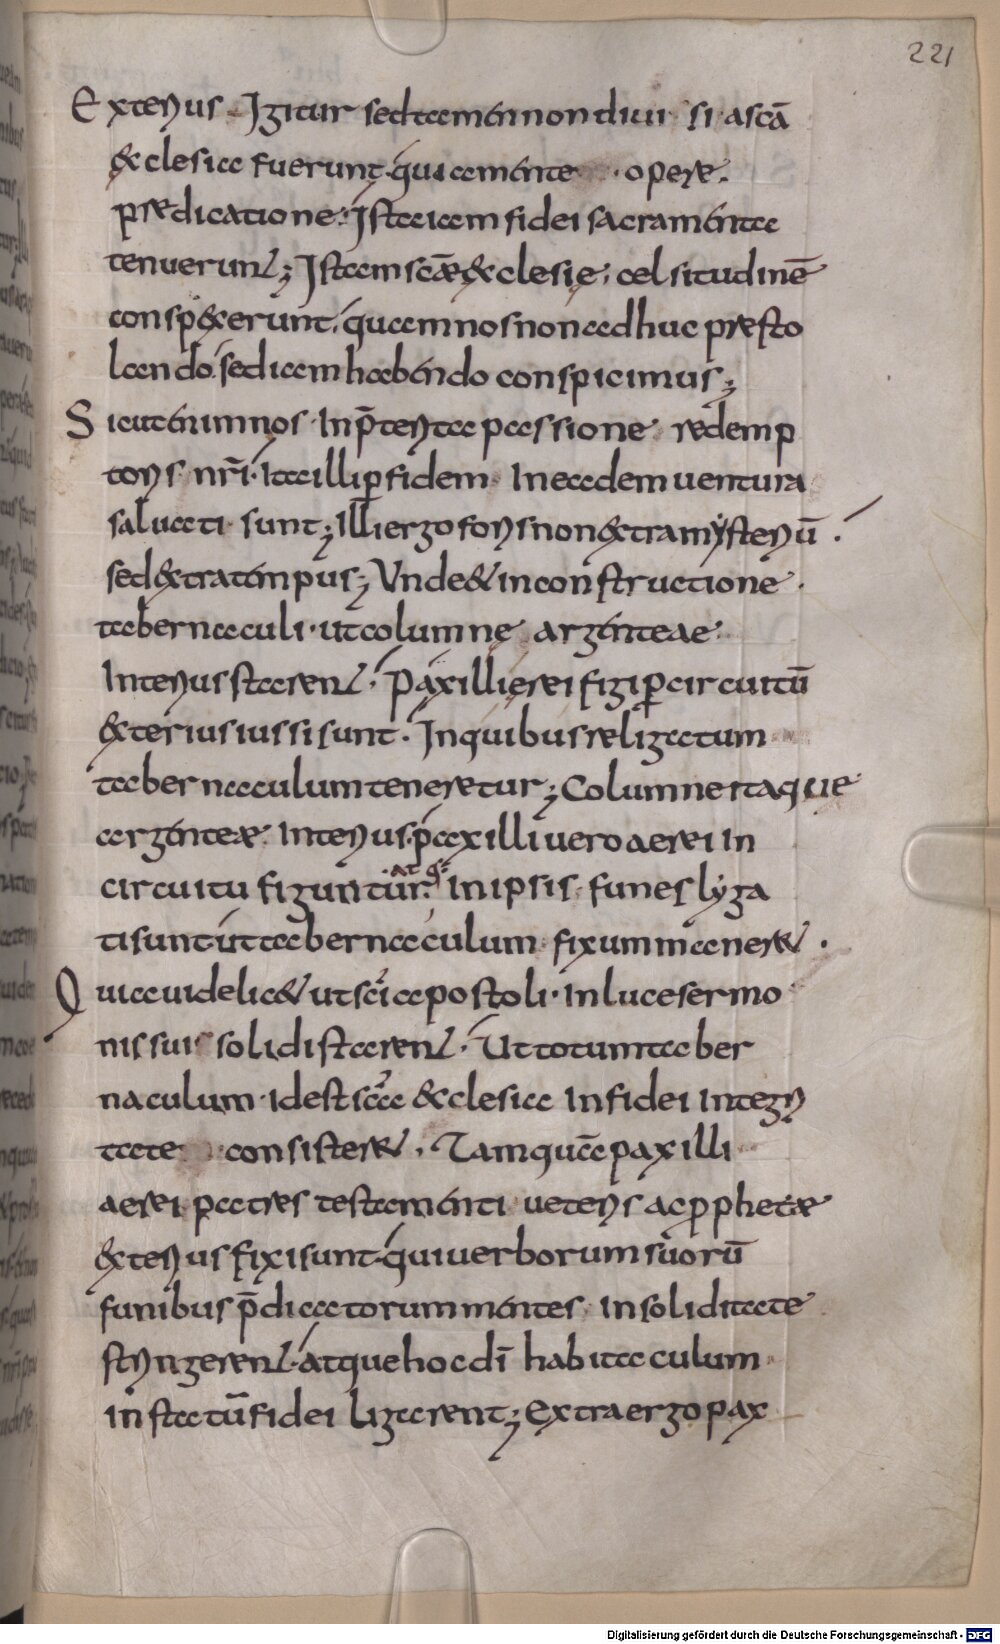 221
Exterius. Igitur sed tamen non diuisi a scā
&clesia fuerunt. qui a mente · opere.
prędicatione. Ista iam fidei sacramenta
tenuerunt; Istam scāe &clesię. celsitudinē
consp&xerunt. quam nos non adhuc pręsto
lando. sed iam habendo conspicimus;
Sicut enim nos. In p̄terita passione redemp
toris nr̄i. Ita illi ꝑ fidem In eadem uentura
saluati sunt; Illi ergo foris non &tra mysteriū.
sed &tra tempus; Vnde & in constructione.
tabernaculi. ut columnę argenteae.
Interius starent. Paxilli ęrei figi ꝑ circuitū
&terius iussi sunt. In quibus religatum
tabernaculum teneretur; Columne itaque
argenteæ. Interius. paxilli uero aerei In
circuitu figuntur. atq: in ipsis funes lyga
ti sunt. ut tabernaculum fixum maner&.
Quia uidelic& ut sc̄i apostoli. In luce sermo
nis sui solidi starent. Ut totum taber
naculum. Id est scā &clesia In fidei Integri
tate consister&. Tamquā paxilli
aerei patres testamenti ueteris ac ꝓphetæ
&terius fixi sunt. qui uerborum suorū
funibus p̄dicatorum mentes. in soliditate
stringerent. atque hoc dī habitaculum
in statū fidei ligarent; Extra ergo pax
Digitalisierung gefördert durch die Deutsche Forschungsgemeinschaft - DFG